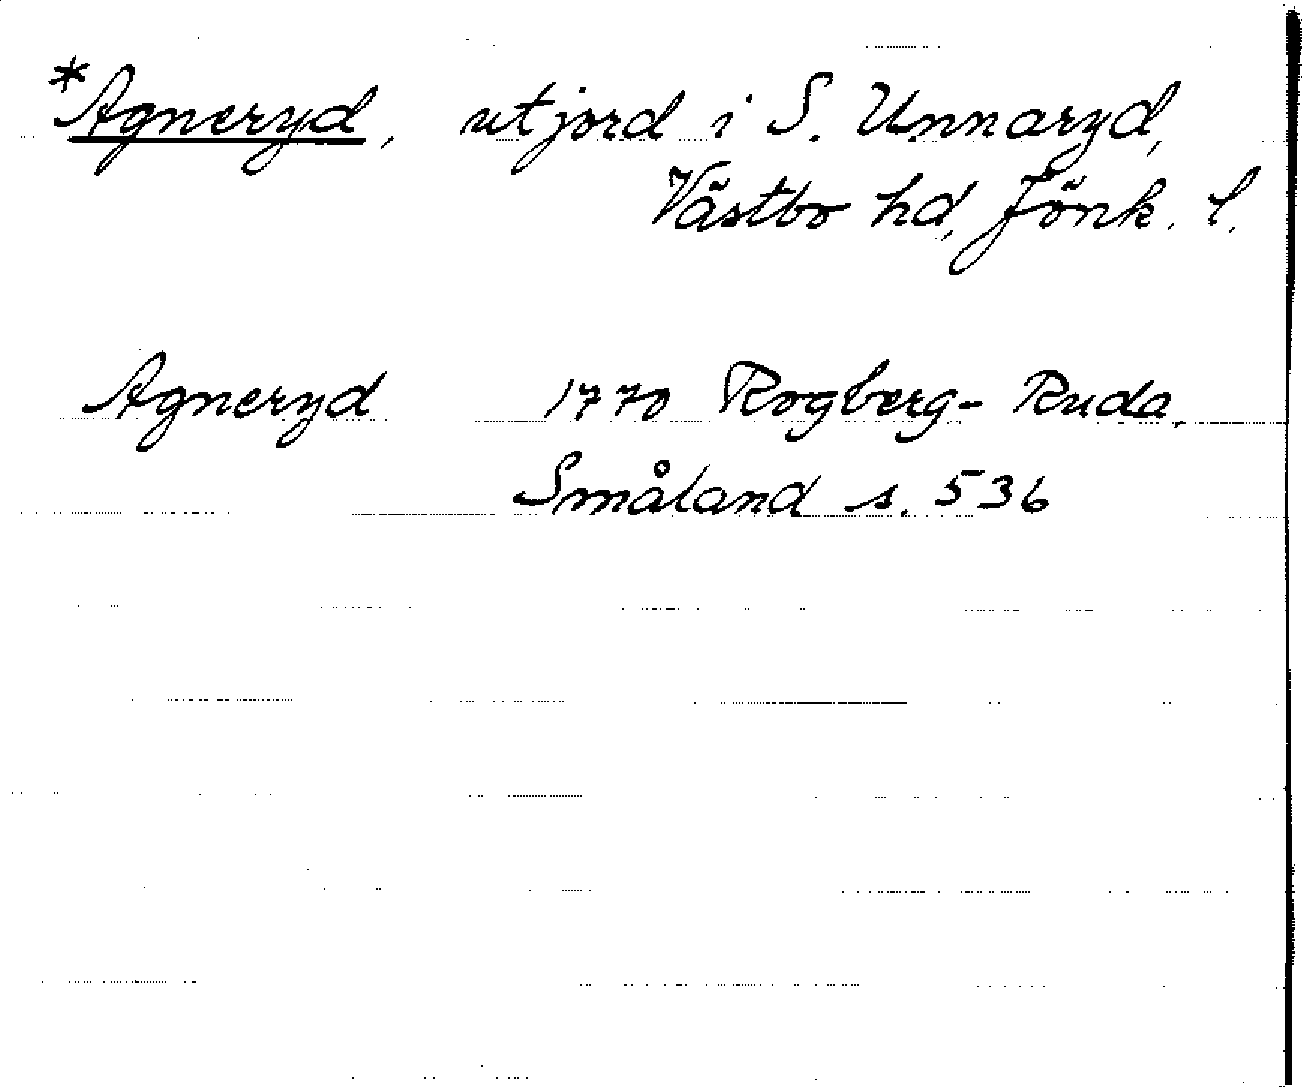 *Agneryd, utjord i S. Unnaryd,
Västbo hd, Jönk. l.
Agneryd 1770 Rogberg-Ruda,
Småland s. 536